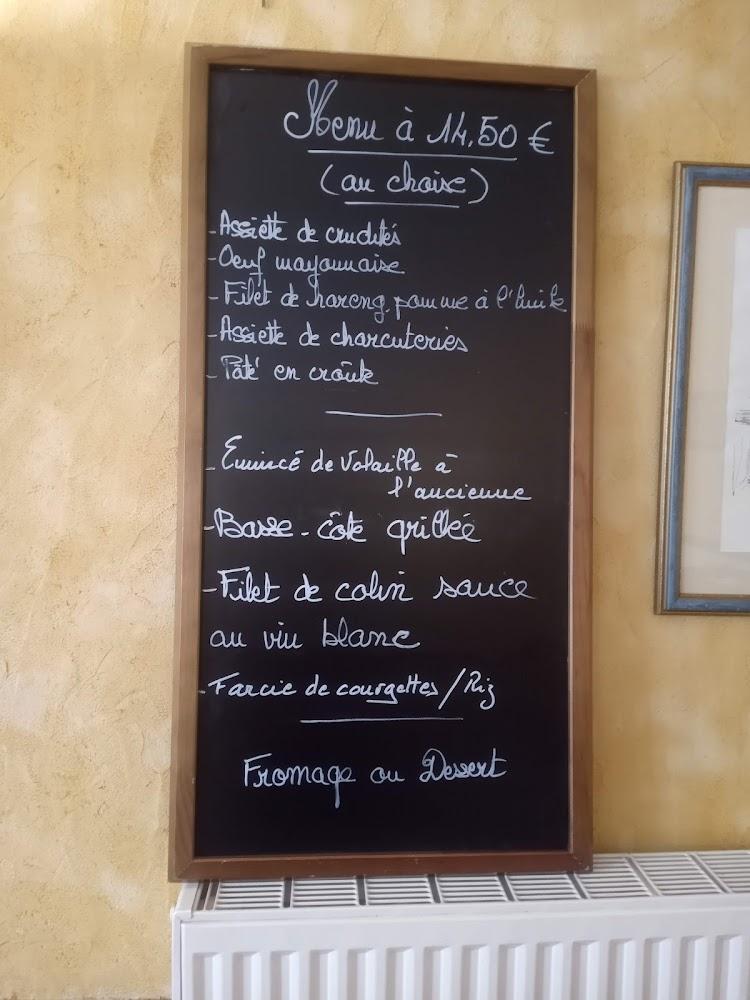 Menu à 14,50 €
(au choise)
- Assiette de crudités
- Oeuf mayonnaise
- Filet de hareng pomme à l'huile
- Assiette de charcuteries
- Pâté en croûte
- Emincé de Volaille à
l'ancienne
- Basse-côte grillée
- Filet de colin sauce
au vin blanc
- Farcie de courgettes / Riz
Fromage ou Dessert